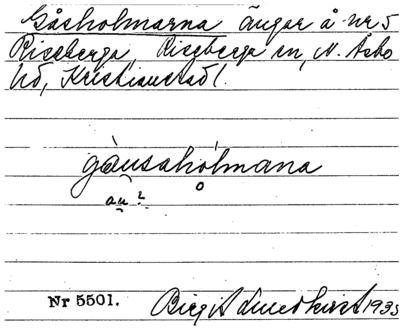 Gåsholmarna ängar å nr 5
Riseberga, Riseberga sn, N. Åsbo
hd, Kristianstad l.
gàusahólmana
au?
o
Nr 5501.
Birgit Lundkvist 1933